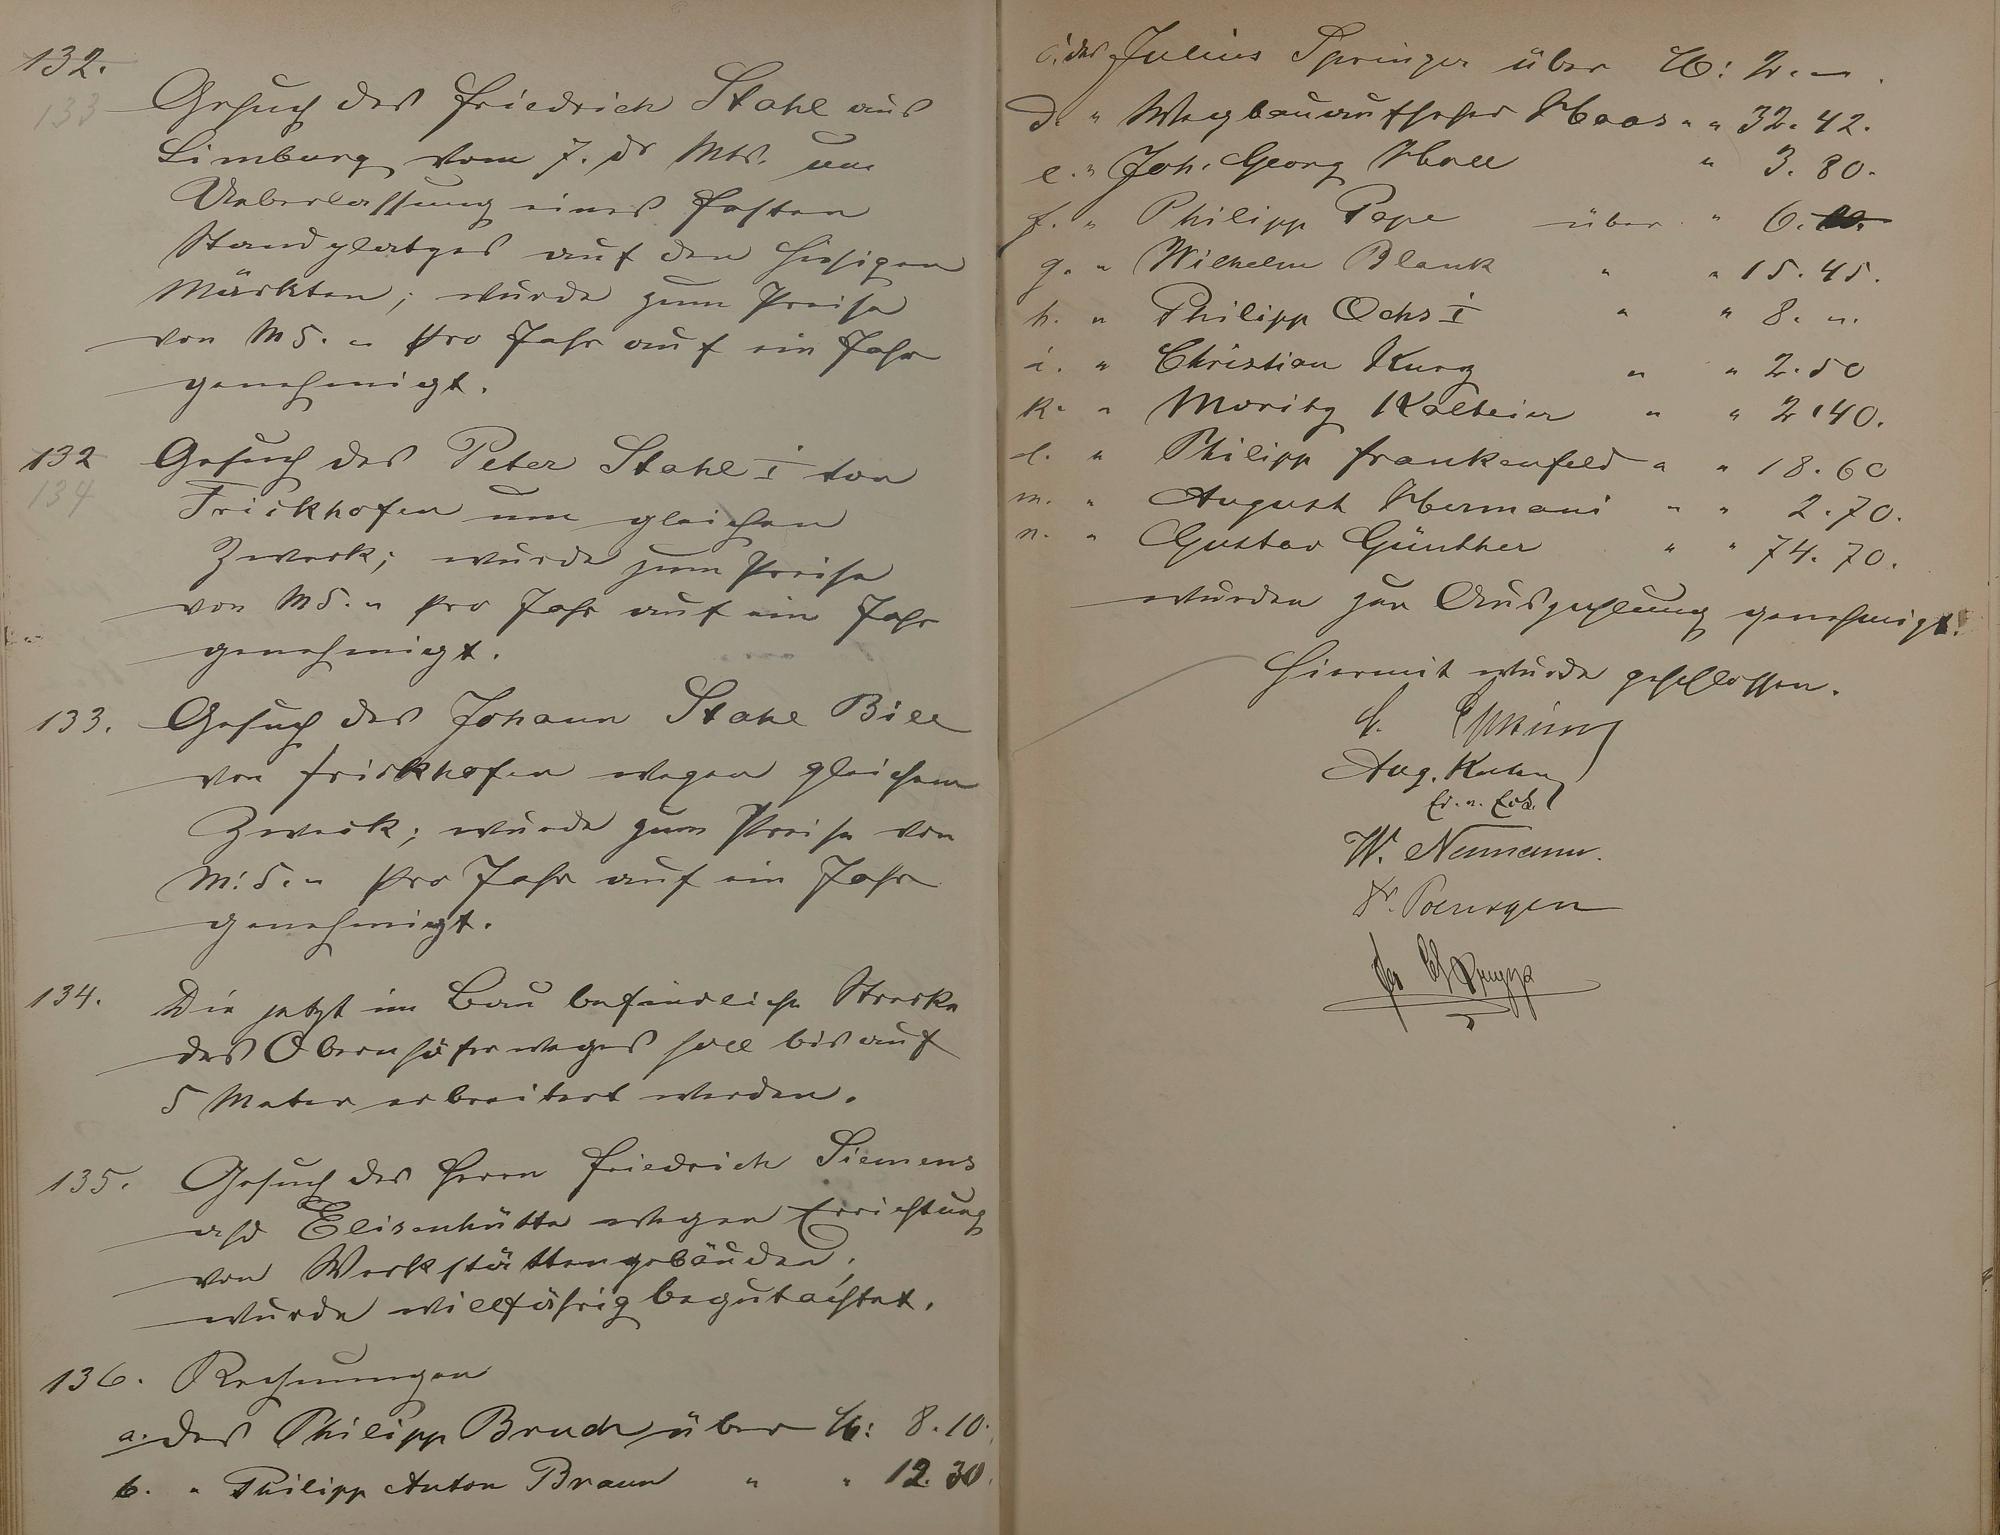 132.
133
Gesuch des Friedrich Stahl aus
Limburg vom 7. ds Mts. um
Ueberlassung eines festen
Standplatzes auf den hiesigen
Märkten; wurde zum Preise
von M 5. " pro Jahr auf ein Jahr
genehmigt.
132
134
Gesuch des Peter Stahl I von
Frickhofen um gleichen
Zweck; wurde zum Preise
von M 5. " pro Jahr auf ein Jahr
genehmigt.
133. Gesuch des Johann Stahl Bill
von Frickhofen wegen gleichem
Zweck; wurde zum Preise von
M: 5. " pro Jahr auf ein Jahr
genehmigt.
134. Die jetzt im Bau befindliche Strecke
des Obernhöferweges soll bis auf
5 Meter erbreitert werden.
135. Gesuch des Herrn Friedrich Siemens
auf Elisenhütte wegen Errichtung
von Werkstättengebäuden;
wurde willfährig begutachtet.
136. Rechnungen
a. des Philipp Bruch über M: 8.10.
b. " Philipp Anton Braun " " 12.30.
c. des Julius Springer über M: 2. –.
d. " Wegbauaufseher Haas " " 32.42.
e. " Joh. Georg Noll " 3.80.
f. " Philipp Pepe über " 6.
g. " Wilhelm Blank " " 15.45.
h. " Philipp Ochs I " " 8. ".
i. " Christian Kurz " " 2.50
k. " Moritz Kalteier " " 2.40.
l. " Philipp Frankenfeld " " 18.60
m. " August Hermani " " 2.70.
n. " Gustav Günther " " 74.70.
wurden zur Auszahlung genehmigt.
Hiermit wurde geschlossen.
Aug.
W. Neumann.
Dr. Poensgen